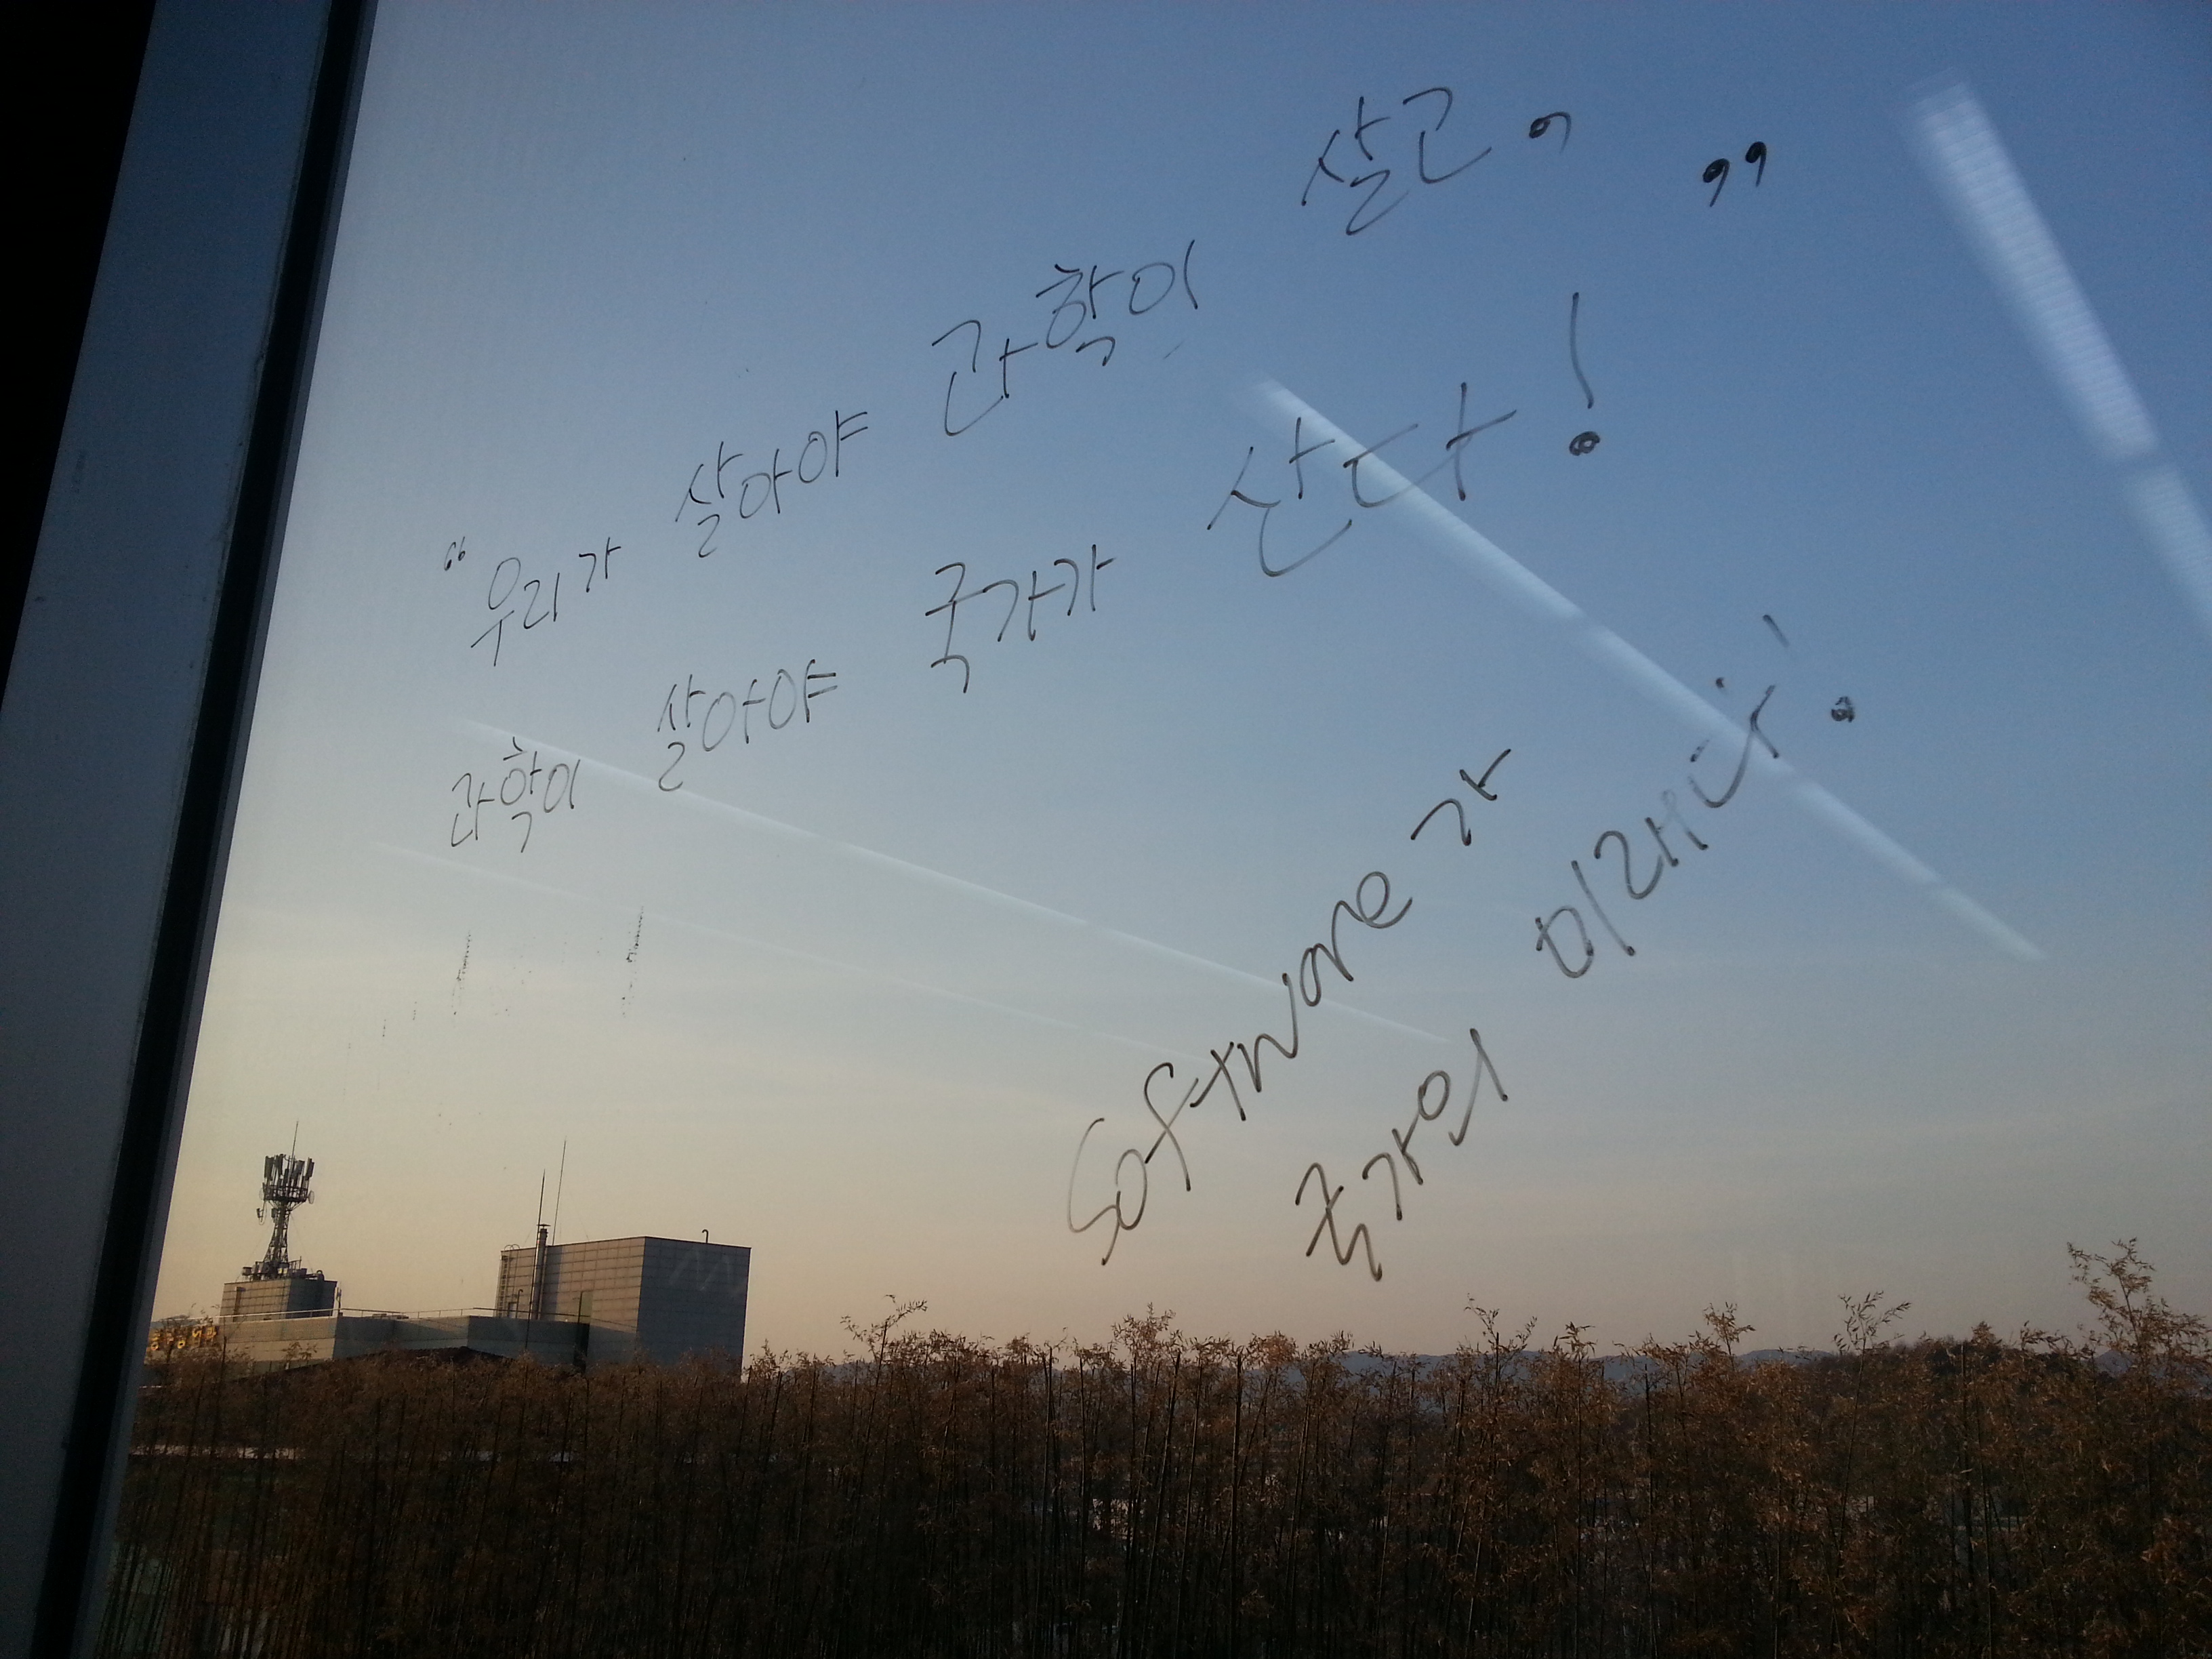 “우리가 살아야 과학이 살고, ”
과학이 살아야 국가가 산다!
Software가
국가의 미래다!